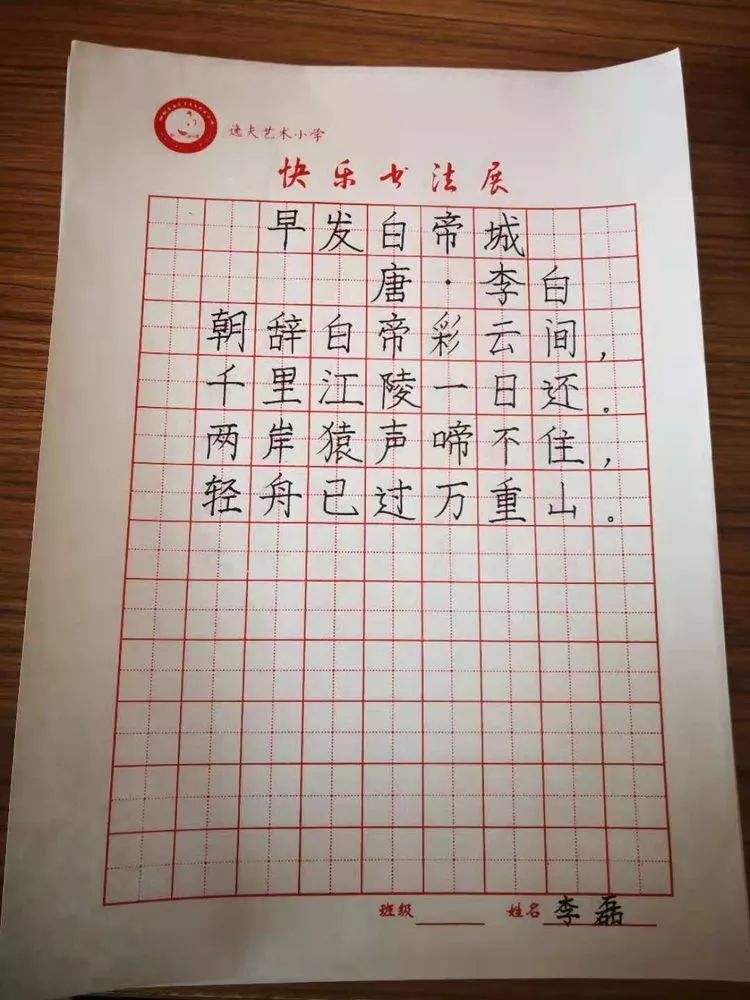 逸夫艺术小学
快乐书法展
早发白帝城
唐·李白
朝辞白帝彩云间，
千里江陵一日还。
两岸猿声啼不住，
轻舟已过万重山。
班级 姓名 李磊